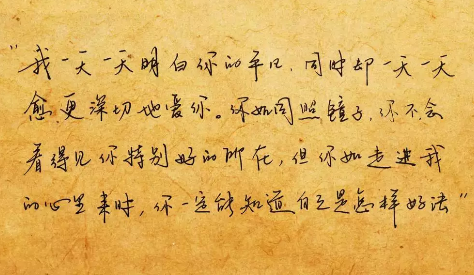 “我一天一天明白你的平凡,同时却一天一天
愈更深切地爱你。你如同照镜子,你不会
看得见你特别好的所在,但你如走进我
的心里来时,你一定能知道自己是怎样好法”